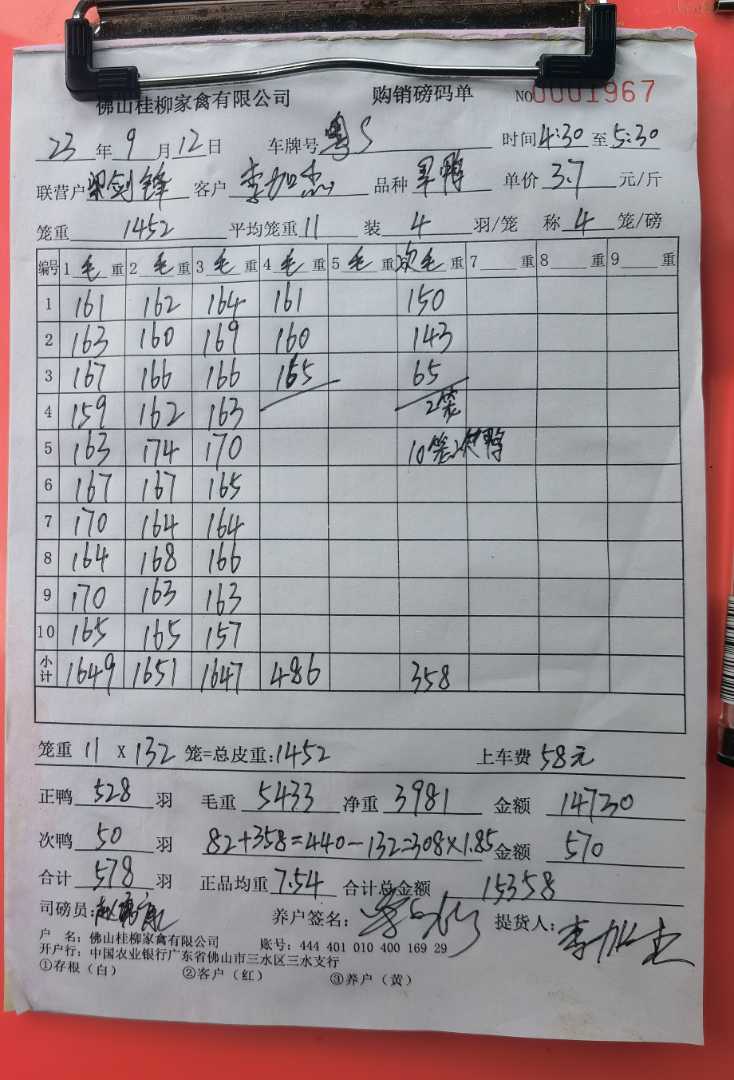 佛山桂柳家禽有限公司 购销磅码单 NO 0001967
23 年 9 月 12 日 车牌号 粤S 时间 4:30 至 5:30
联营户 梁剑锋 客户 李加杰 品种 单价 3.7 元/斤
笼重 1452 平均笼重 11 装 4 羽/笼 称 4 笼/磅
编号 1 毛 重 2 毛 重 3 毛 重 4 毛 重 5 毛 重 次毛 重 7 重 8 重 9 重
1 161 162 164 161 150
2 163 160 169 160 143
3 167 166 166 165 65
4 159 162 163 2笼
5 163 174 170 10笼次鸭
6 167 167 165
7 170 164 164
8 164 168 166
9 170 163 163
10 165 165 157
小计 1649 1651 1647 486 358
笼重 11 X 132 笼=总皮重:1452 上车费 58元
正鸭 528 羽 毛重 5433 净重 3981 金额 14730
次鸭 50 羽 82+358=440-132=308×1.85 金额 570
合计 578 羽 正品均重 7.54 合计总金额 15358
司磅员: 养户签名: 提货人: 李加杰
户 名: 佛山桂柳家禽有限公司 账号: 444 401 010 400 169 29
开户行: 中国农业银行广东省佛山市三水区三水支行
①存根（白） ②客户（红） ③养户（黄）